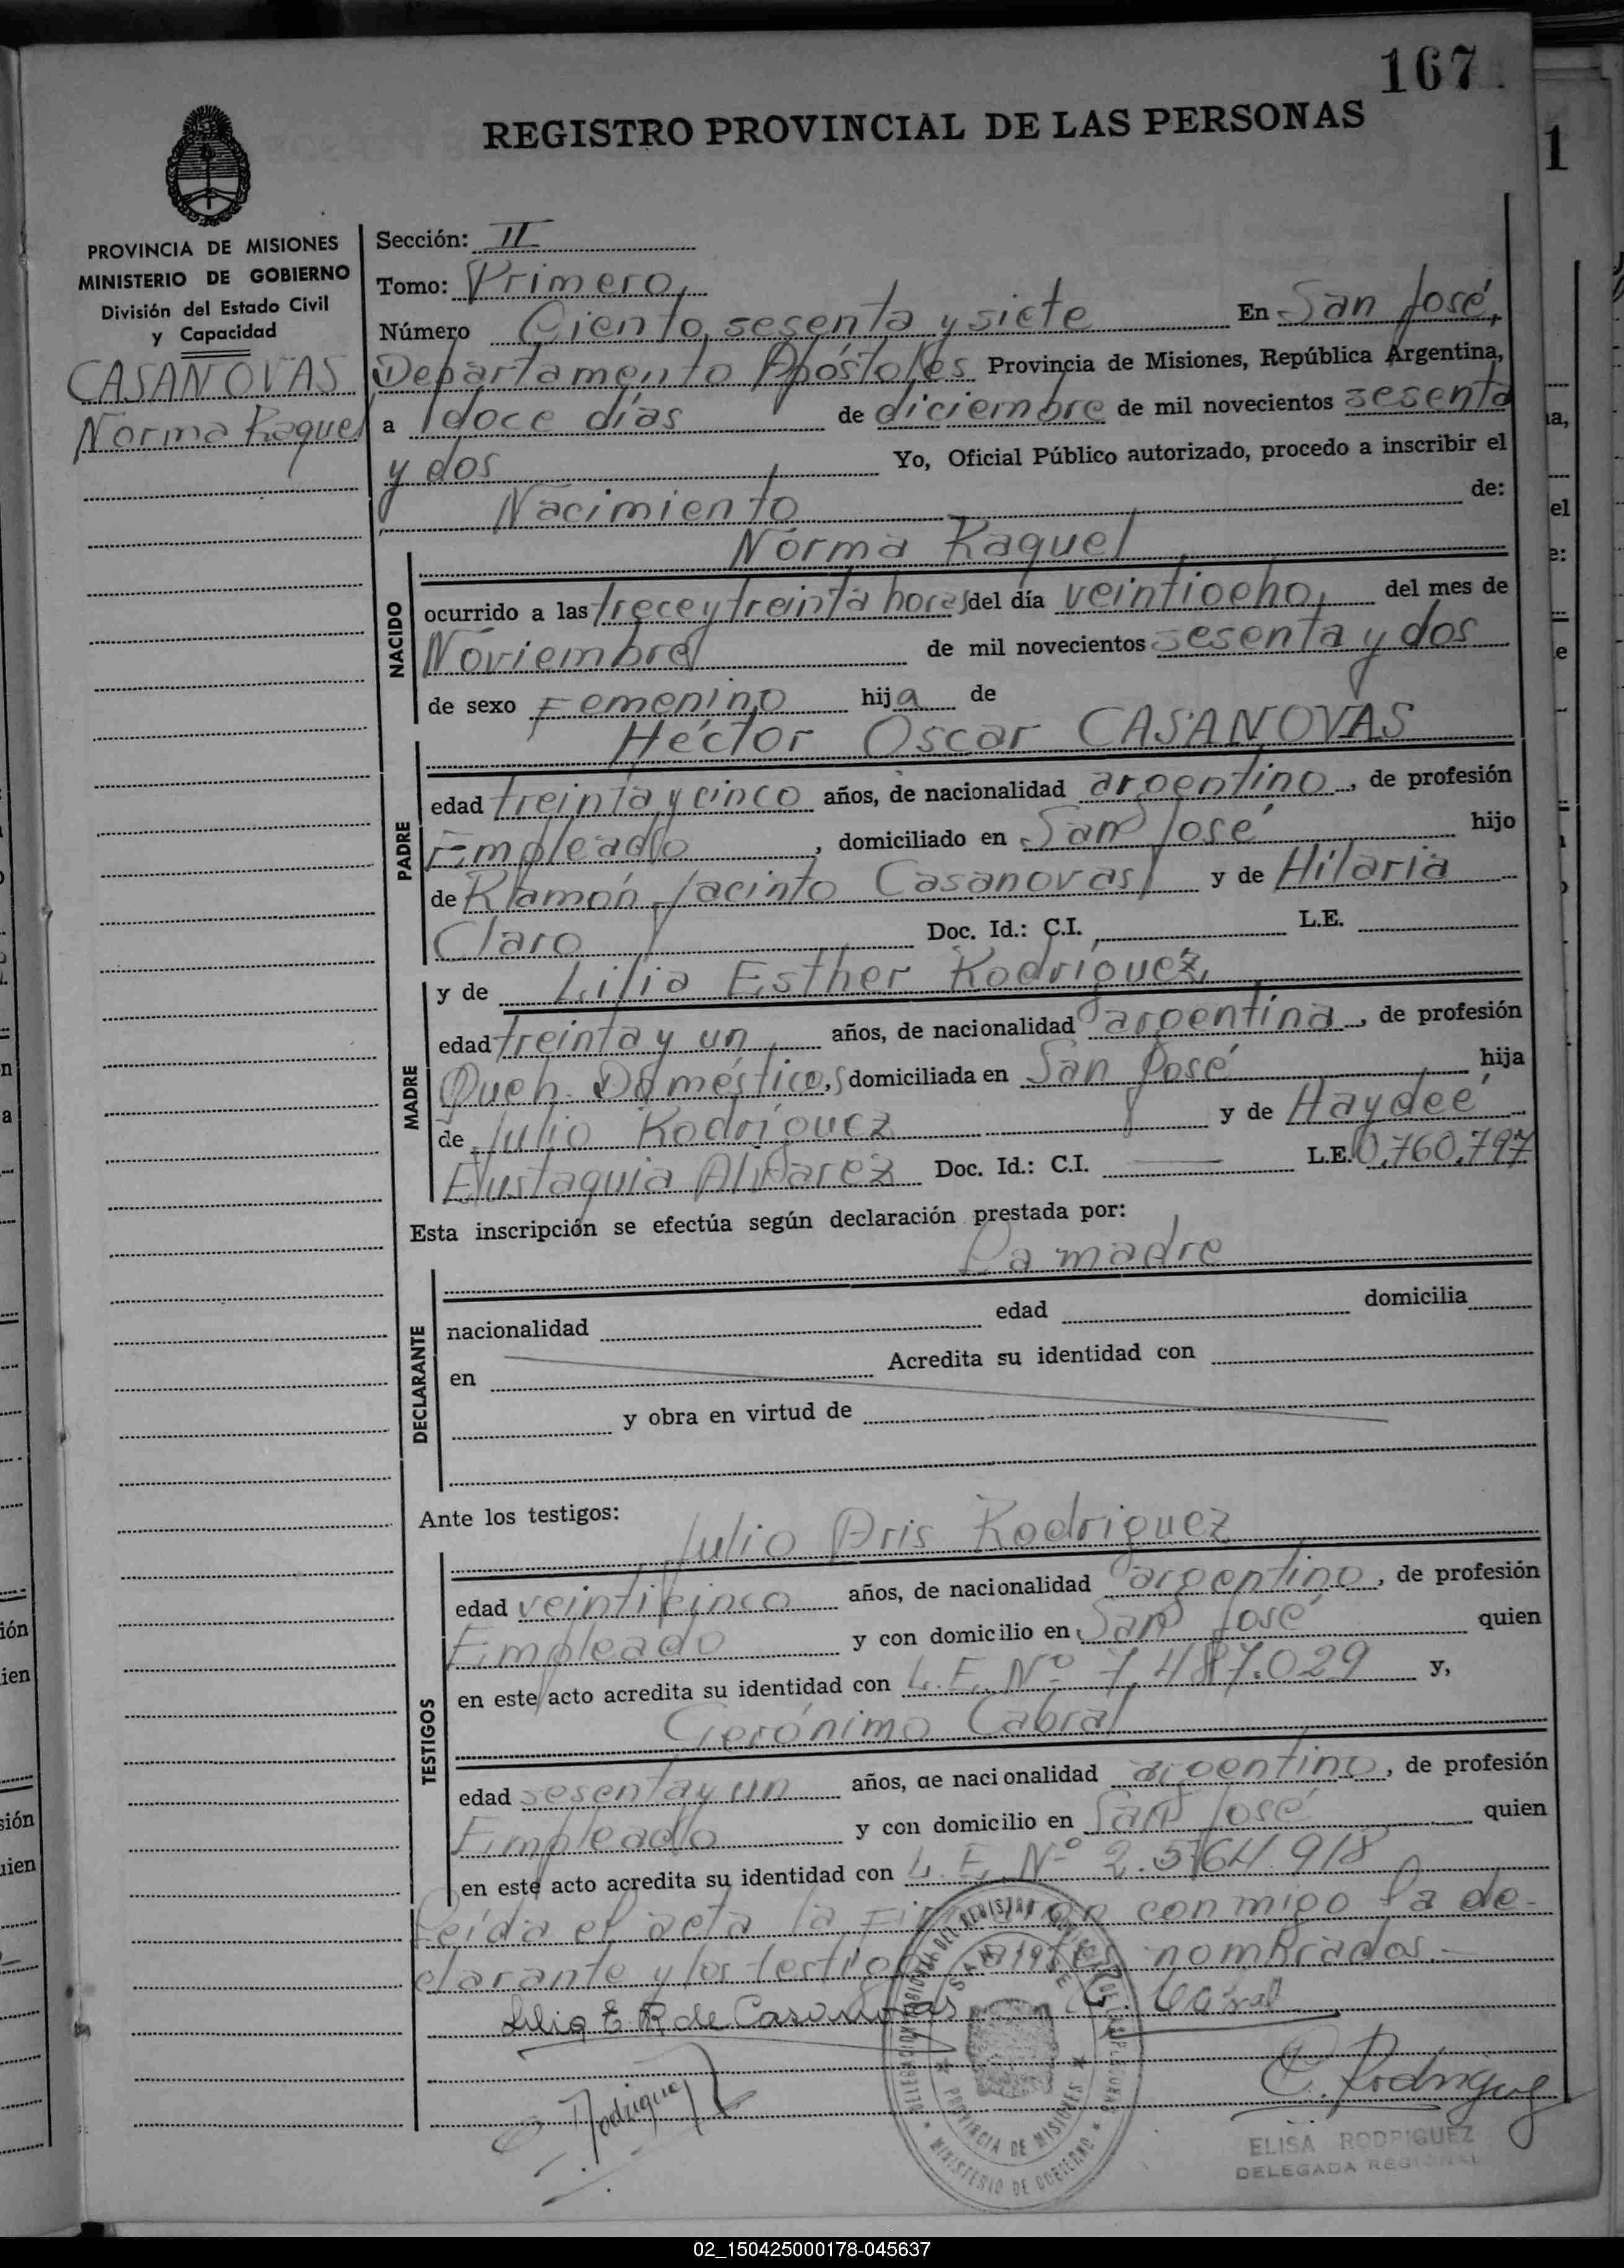 167
REGISTRO PROVINCIAL DE LAS PERSONAS
1
PROVINCIA DE MISIONES
MINISTERIO DE GOBIERNO
División del Estado Civil
y Capacidad
CASANOVAS
Norma Raquel
Sección: II
Tomo: Primero,
Número Ciento sesenta y siete En San José,
Departamento Apóstoles Provincia de Misiones, República Argentina,
a doce días de diciembre de mil novecientos sesenta
y dos Yo, Oficial Público autorizado, procedo a inscribir el
Nacimiento de:
Norma Raquel
NACIDO
ocurrido a las trece y treinta horas del día veintiocho, del mes de
Noviembre de mil novecientos sesenta y dos
de sexo Femenino hija de
Héctor Oscar CASANOVAS
PADRE
edad treinta y cinco años, de nacionalidad argentino, de profesión
Empleado, domiciliado en San José hijo
de Ramón Jacinto Casanovas y de Hilaria
Claro Doc. Id.: C.I. L.E.
y de Lilia Esther Rodriguez,
MADRE
edad treinta y un años, de nacionalidad argentina, de profesión
Queh. Domésticos, domiciliada en San José hija
de Julio Rodríguez y de Haydeé
Eustaquia Alvarez Doc. Id.: C.I. L.E. 0.760.797
Esta inscripción se efectúa según declaración prestada por:
La madre
DECLARANTE
nacionalidad edad domicilia
en Acredita su identidad con
y obra en virtud de
Ante los testigos:
Julio Aris Rodriguez
TESTIGOS
edad veinticinco años, de nacionalidad argentino, de profesión
Empleado y con domicilio en San José quien
en este acto acredita su identidad con L.E. Nº 7.487.029 y,
Gerónimo Cabral
edad sesenta y un años, de nacionalidad argentino, de profesión
Empleado y con domicilio en San José quien
en este acto acredita su identidad con L.E. Nº 2.564.918
Leída el acta la firman conmigo la de-
clarante y los testigos antes nombrados.-
Lilia E. R. de Casanovas G. Cabral
Rodriguez
E. Rodriguez
SAN JOSE
PROVINCIA DE MISIONES
MINISTERIO DE GOBIERNO
ELISA RODRIGUEZ
DELEGADA REGIONAL
02_150425000178-045637